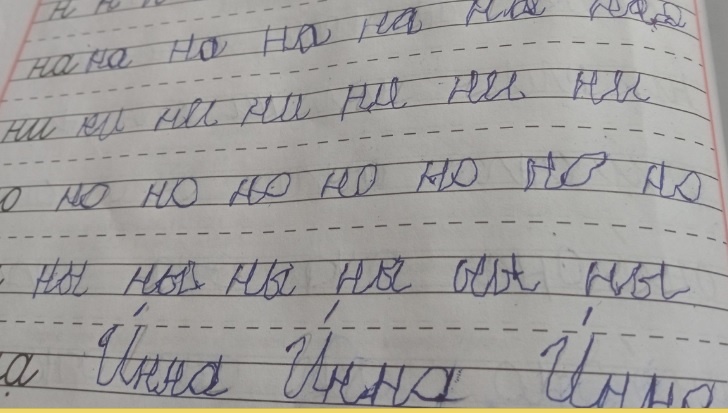 на на на на на на на
ни ни ни ни ни ни ни
о но но но но но но но
ны ны ны ны ны ны
а И́нна И́нна И́нна